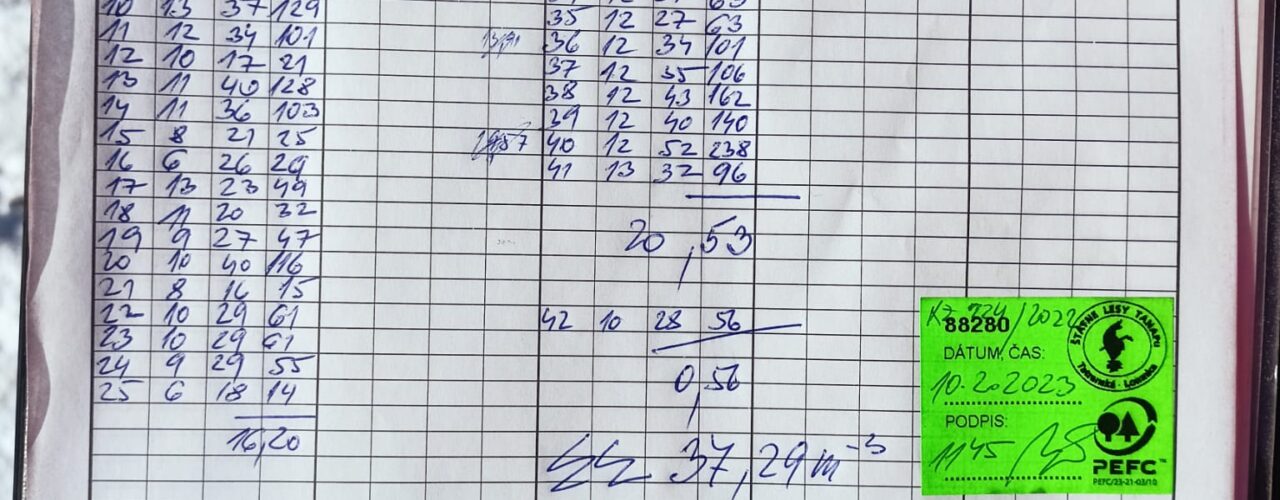 10 13 37 129
11 12 34 101
12 10 17 21
13 11 40 128
14 11 36 103
15 8 21 25
16 6 26 29
17 13 23 49
18 11 20 32
19 9 27 47
20 10 40 116
21 8 16 15
22 10 29 61
23 10 29 61
24 9 29 55
25 6 18 14
16,20
35 12 27 63
36 12 34 101
37 12 35 106
38 12 43 162
39 12 40 140
40 12 52 238
41 13 32 96
20,53
42 10 28 56
0,56
37,29 m-3
/2022
88280
DÁTUM, ČAS:
10.2.2023
PODPIS:
1145
ŠTÁTNE LESY TANAPu
Tatranská Lomnica
PEFC™
PEFC/23-21-03/10